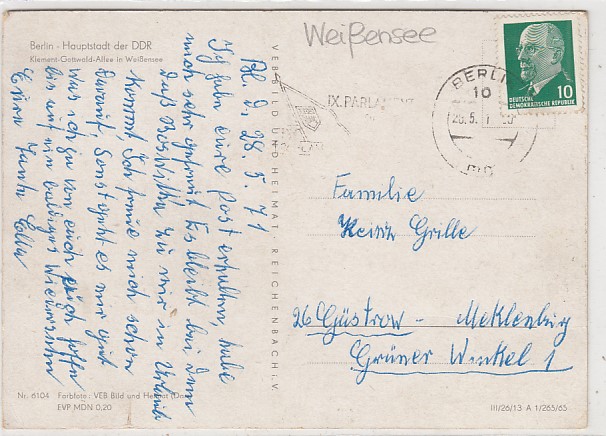 Weißensee
Berlin - Hauptstadt der DDR
Klement-Gottwald-Allee in Weißensee
Bl. d. 28.5.71
Ich habe eure Post erhalten, habe
mich sehr gefreut Es bleibt bei dem
daß Roswitha zu mir in Urlaub
kommt, Ich freue mich schon
darauf, Sonst geht es mir gut
was ich zu von euch auch hoffe
bis auf ein baldiges Wiedersehen
Eure Tante Ella
VEB BILD UND HEIMAT REICHENBACH i. V.
IX. PARLAMENT
BERLIN
10
28.5.71
10
DEUTSCHE
DEMOKRATISCHE REPUBLIK
Familie
Heinz Grille
26 Güstrow - Meklenburg
Grüner Winkel 1
Nr. 6104 Farbfoto: VEB Bild und Heimat
EVP MDN 0,20
III/26/13 A 1/265/65